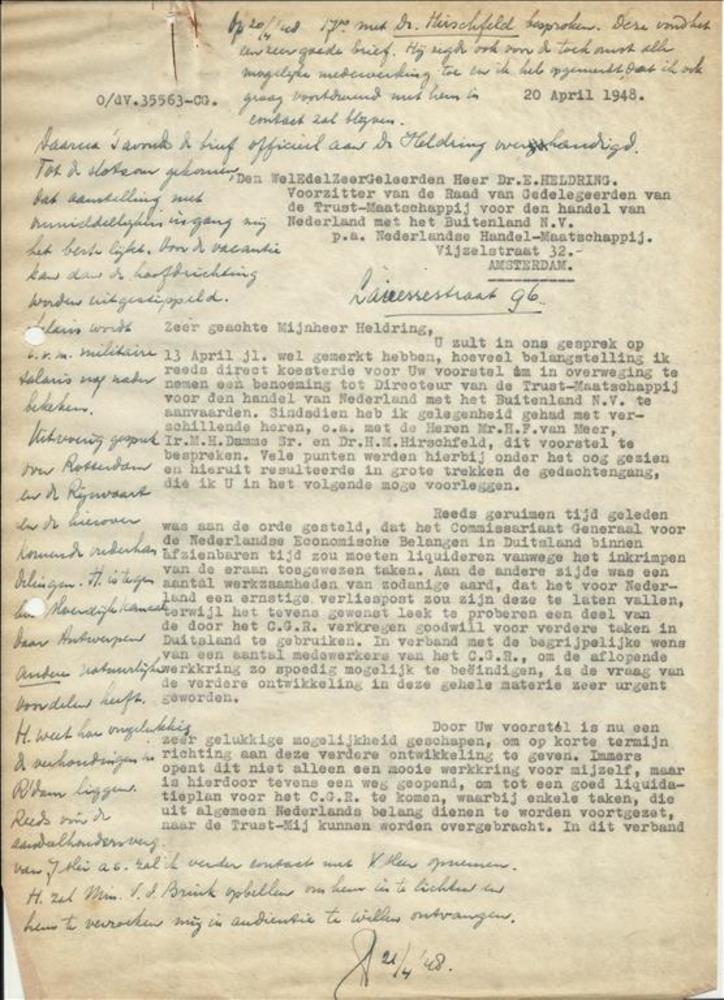 Op 20/4 '48 17.00 met Dr. Hirschfeld besproken. Deze vond het
een zeer goede brief. Hij zegde ook voor de toekomst alle
mogelijke medewerking toe en ik heb opgemerkt, dat ik ook
graag voortdurend met hem in
contact zal blijven.
O/dV.35563-CG.
20 April 1948.
Daarna 's avonds de brief officieel aan Dr Heldring overhandigd.
Tot de slotsom gekomen,
dat aanstelling met
onmiddellijke ingang mij
het beste lijkt. Voor de vacantie
kan dan de hoofdrichting
worden uitgestippeld.
Salaris wordt
i.v.m. militaire
salaris nog nader
bekeken.
Uitvoerig gesprek
over Rotterdam
en de Rijnvaart
en de hierover
komende onderhan
delingen. H. is tegen
het Moerdijk kanaal
daar Antwerpen
andere natuurlijke
voordelen heeft.
H. weet hoe ongelukkig
de verhoudingen in
R'dam liggen.
Reeds vóór de
aandeelhoudersverg.
van 7 Mei a.s. zal ik verder contact met V. Meer opnemen.
H. zal Min. v. d. Brink opbellen om hem in te lichten en
hem te verzoeken mij in audientie te willen ontvangen.
21/4 '48.
Den WelEdelZeerGeleerden Heer Dr.E.HELDRING.
Voorzitter van de Raad van Gedelegeerden van
de Trust-Maatschappij voor den handel van
Nederland met het Buitenland N.V.
p.a. Nederlandse Handel-Maatschappij.
Vijzelstraat 32.-
AMSTERDAM.
Lairessestraat 96
Zeer geachte Mijnheer Heldring,
U zult in ons gesprek op
13 April jl. wel gemerkt hebben, hoeveel belangstelling ik
reeds direct koesterde voor Uw voorstel om in overweging te
nemen een benoeming tot Directeur van de Trust-Maatschappij
voor den handel van Nederland met het Buitenland N.V. te
aanvaarden. Sindsdien heb ik gelegenheid gehad met ver-
schillende heren, o.a. met de Heren Mr.H.F.van Meer,
Ir.M.H.Damme Sr. en Dr.H.M.Hirschfeld, dit voorstel te
bespreken. Vele punten werden hierbij onder het oog gezien
en hieruit resulteerde in grote trekken de gedachtengang,
die ik U in het volgende moge voorleggen.
Reeds geruimen tijd geleden
was aan de orde gesteld, dat het Commissariaat Generaal voor
de Nederlandse Economische Belangen in Duitsland binnen
afzienbaren tijd zou moeten liquideren vanwege het inkrimpen
van de eraan toegewezen taken. Aan de andere zijde was een
aantal werkzaamheden van zodanige aard, dat het voor Neder-
land een ernstige verliespost zou zijn deze te laten vallen,
terwijl het tevens gewenst leek te proberen een deel van
de door het C.G.R. verkregen goodwill voor verdere taken in
Duitsland te gebruiken. In verband met de begrijpelijke wens
van een aantal medewerkers van het C.G.R., om de aflopende
werkkring zo spoedig mogelijk te beëindigen, is de vraag van
de verdere ontwikkeling in deze gehele materie zeer urgent
geworden.
Door Uw voorstel is nu een
zeer gelukkige mogelijkheid geschapen, om op korte termijn
richting aan deze verdere ontwikkeling te geven. Immers
opent dit niet alleen een mooie werkkring voor mijzelf, maar
is hierdoor tevens een weg geopend, om tot een goed liquida-
tieplan voor het C.G.R. te komen, waarbij enkele taken, die
uit algemeen Nederlands belang dienen te worden voortgezet,
naar de Trust-Mij kunnen worden overgebracht. In dit verband